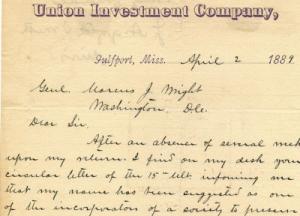 Union Investment Company,
Gulfport, Miss. April 2 1889.
Genl. Marcus J. Wright
Washington, D.C.
Dear Sir.
After an absence of several week
upon my return I find on my desk your
circular letter of the 15th ult. informing me
that my name has been suggested as one
of the incorporators of a society to preserve